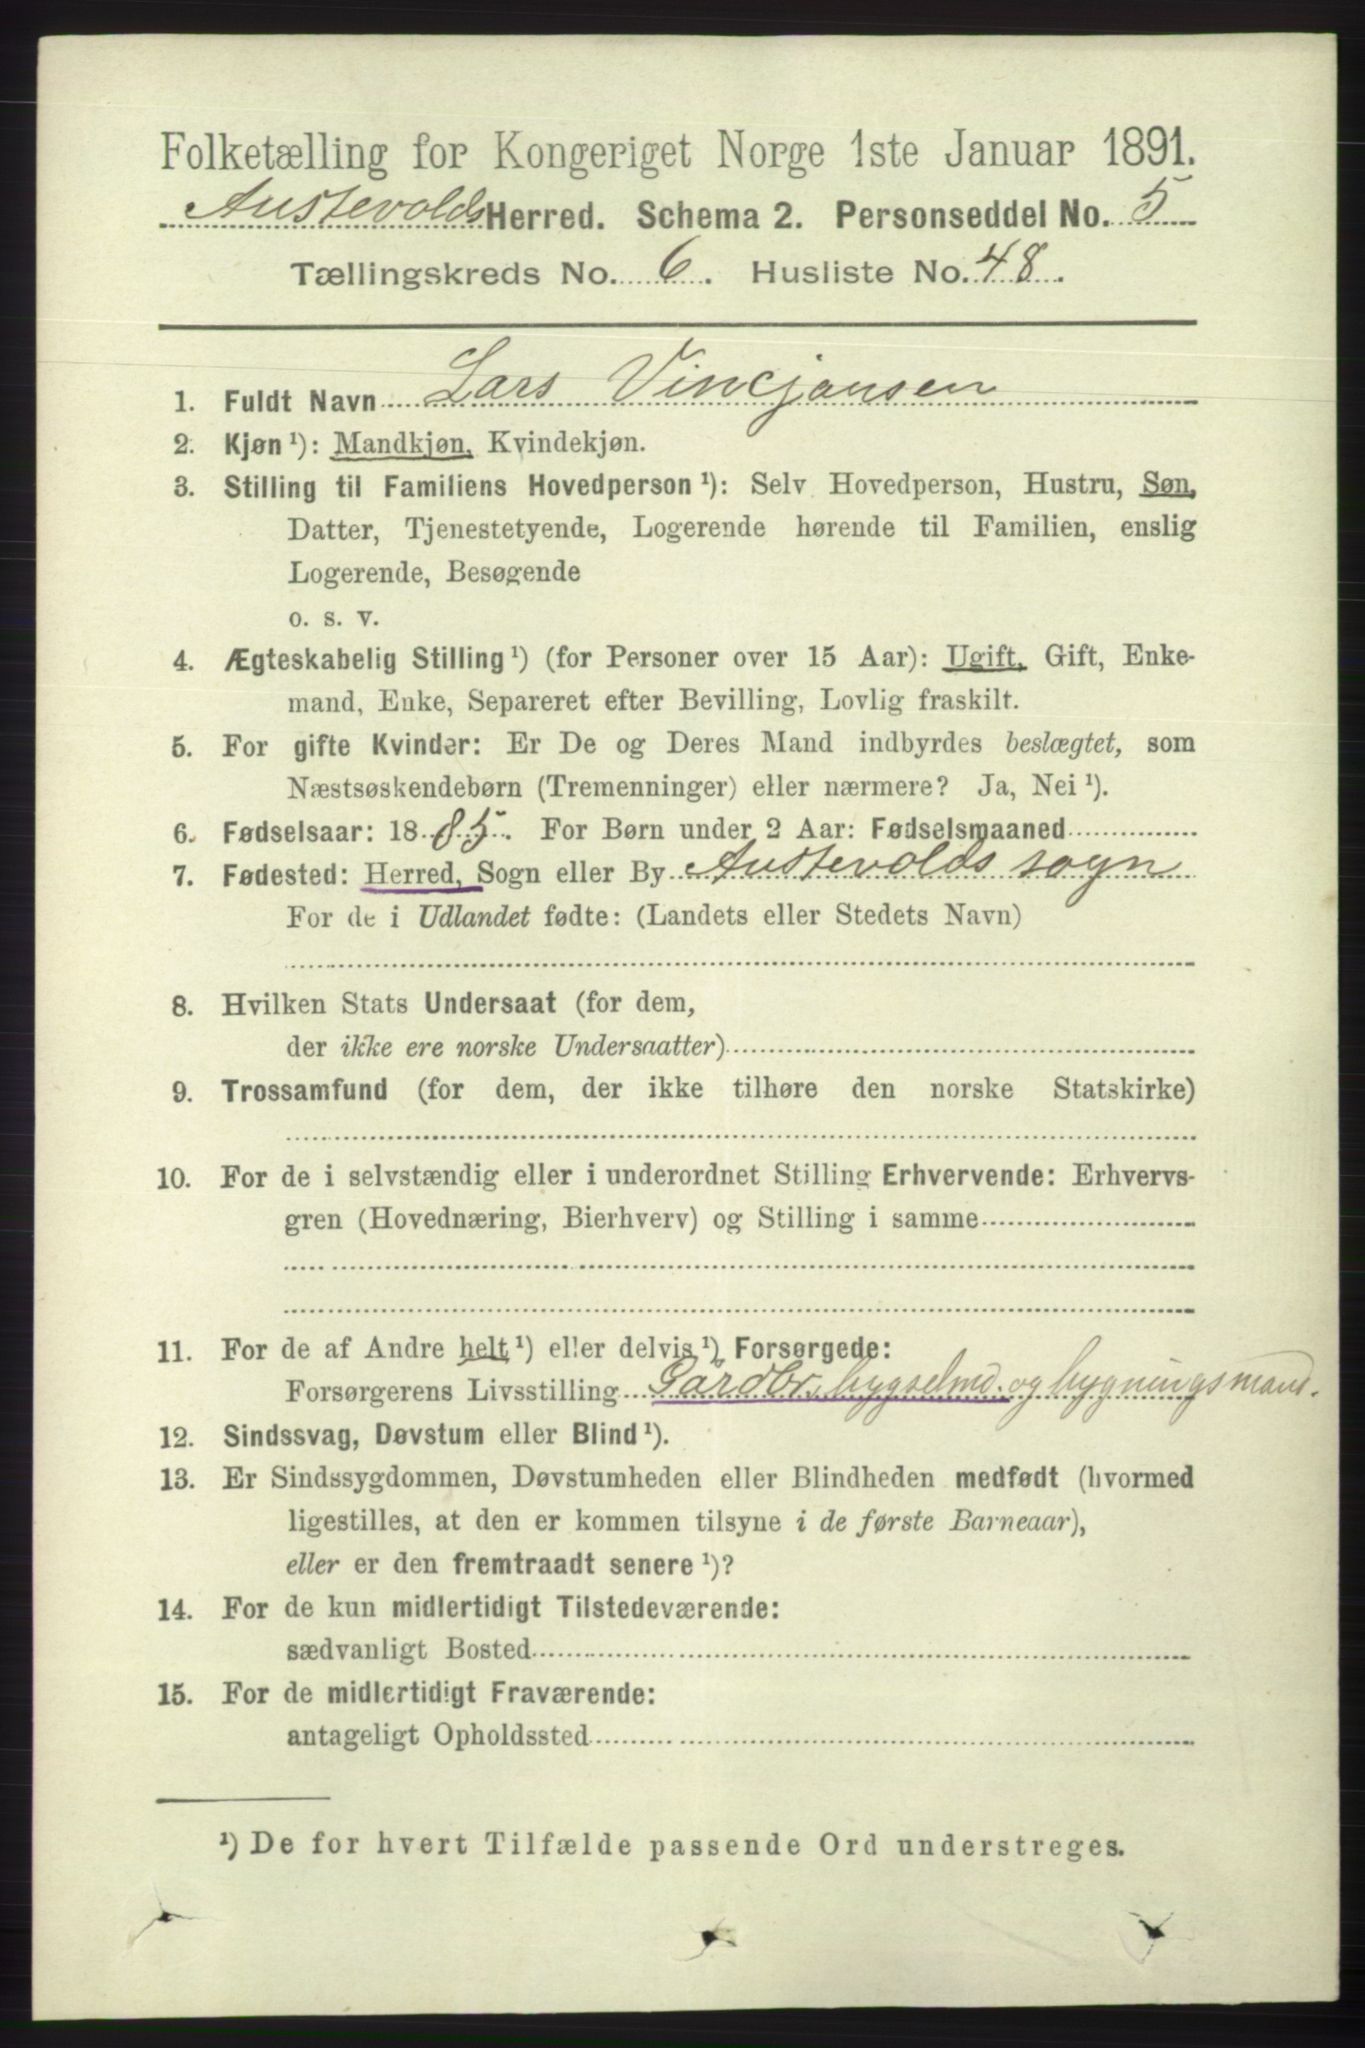 Folketælling for Kongeriget Norge 1ste Januar 1891.
Austevolds Herred. Schema 2. Personseddel No. 5
Tællingskreds No. 6. Husliste No. 48.
1. Fuldt Navn Lars Vincjansen
2. Kjøn ¹): Mandkjøn, Kvindekjøn.
3. Stilling til Familiens Hovedperson ¹): Selv Hovedperson, Hustru, Søn,
Datter, Tjenestetyende, Logerende hørende til Familien, enslig
Logerende, Besøgende
o. s. v.
4. Ægteskabelig Stilling ¹) (for Personer over 15 Aar): Ugift, Gift, Enke-
mand, Enke, Separeret efter Bevilling, Lovlig fraskilt.
5. For gifte Kvinder: Er De og Deres Mand indbyrdes beslægtet, som
Næstsøskendebørn (Tremenninger) eller nærmere? Ja, Nei ¹).
6. Fødselsaar: 1885. For Børn under 2 Aar: Fødselsmaaned
7. Fødested: Herred, Sogn eller By Austevolds sogn
For de i Udlandet fødte: (Landets eller Stedets Navn)
8. Hvilken Stats Undersaat (for dem,
der ikke ere norske Undersaatter)
9. Trossamfund (for dem, der ikke tilhøre den norske Statskirke)
10. For de i selvstændig eller i underordnet Stilling Erhvervende: Erhvervs-
gren (Hovednæring, Bierhverv) og Stilling i samme
11. For de af Andre helt ¹) eller delvis ¹) Forsørgede:
Forsørgerens Livsstilling Gårdbr. bygselmd. og bygningsmand.
12. Sindssvag, Døvstum eller Blind ¹).
13. Er Sindssygdommen, Døvstumheden eller Blindheden medfødt (hvormed
ligestilles, at den er kommen tilsyne i de første Barneaar),
eller er den fremtraadt senere ¹)?
14. For de kun midlertidigt Tilstedeværende:
sædvanligt Bosted
15. For de midlertidigt Fraværende:
antageligt Opholdssted
¹) De for hvert Tilfælde passende Ord understreges.